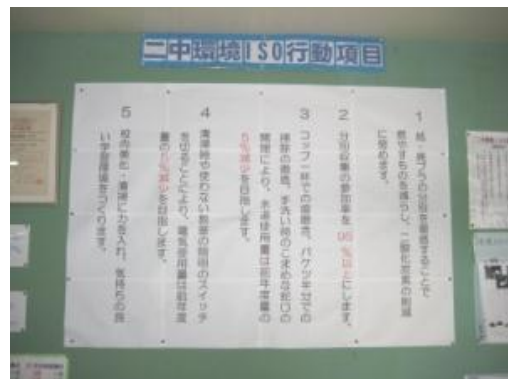 二中環境ISO行動項目
1 紙・廃プラの分別を徹底することで
燃やすものを減らし、二酸化炭素の削減
に努めます。
2 分別収集の参加率を 95%以上にします。
3 コップ一杯での歯磨き、バケツ半分での
掃除の徹底、手洗い時のこまめな蛇口の
開閉により、水道使用量は前年度量の
5%減少を目指します。
4 清掃時や使わない教室の照明のスイッチ
を切ることにより、電気使用量は前年度
量の5%減少を目指します。
5 校内美化・清掃に力を入れ、気持ちの良
い学習環境をつくります。